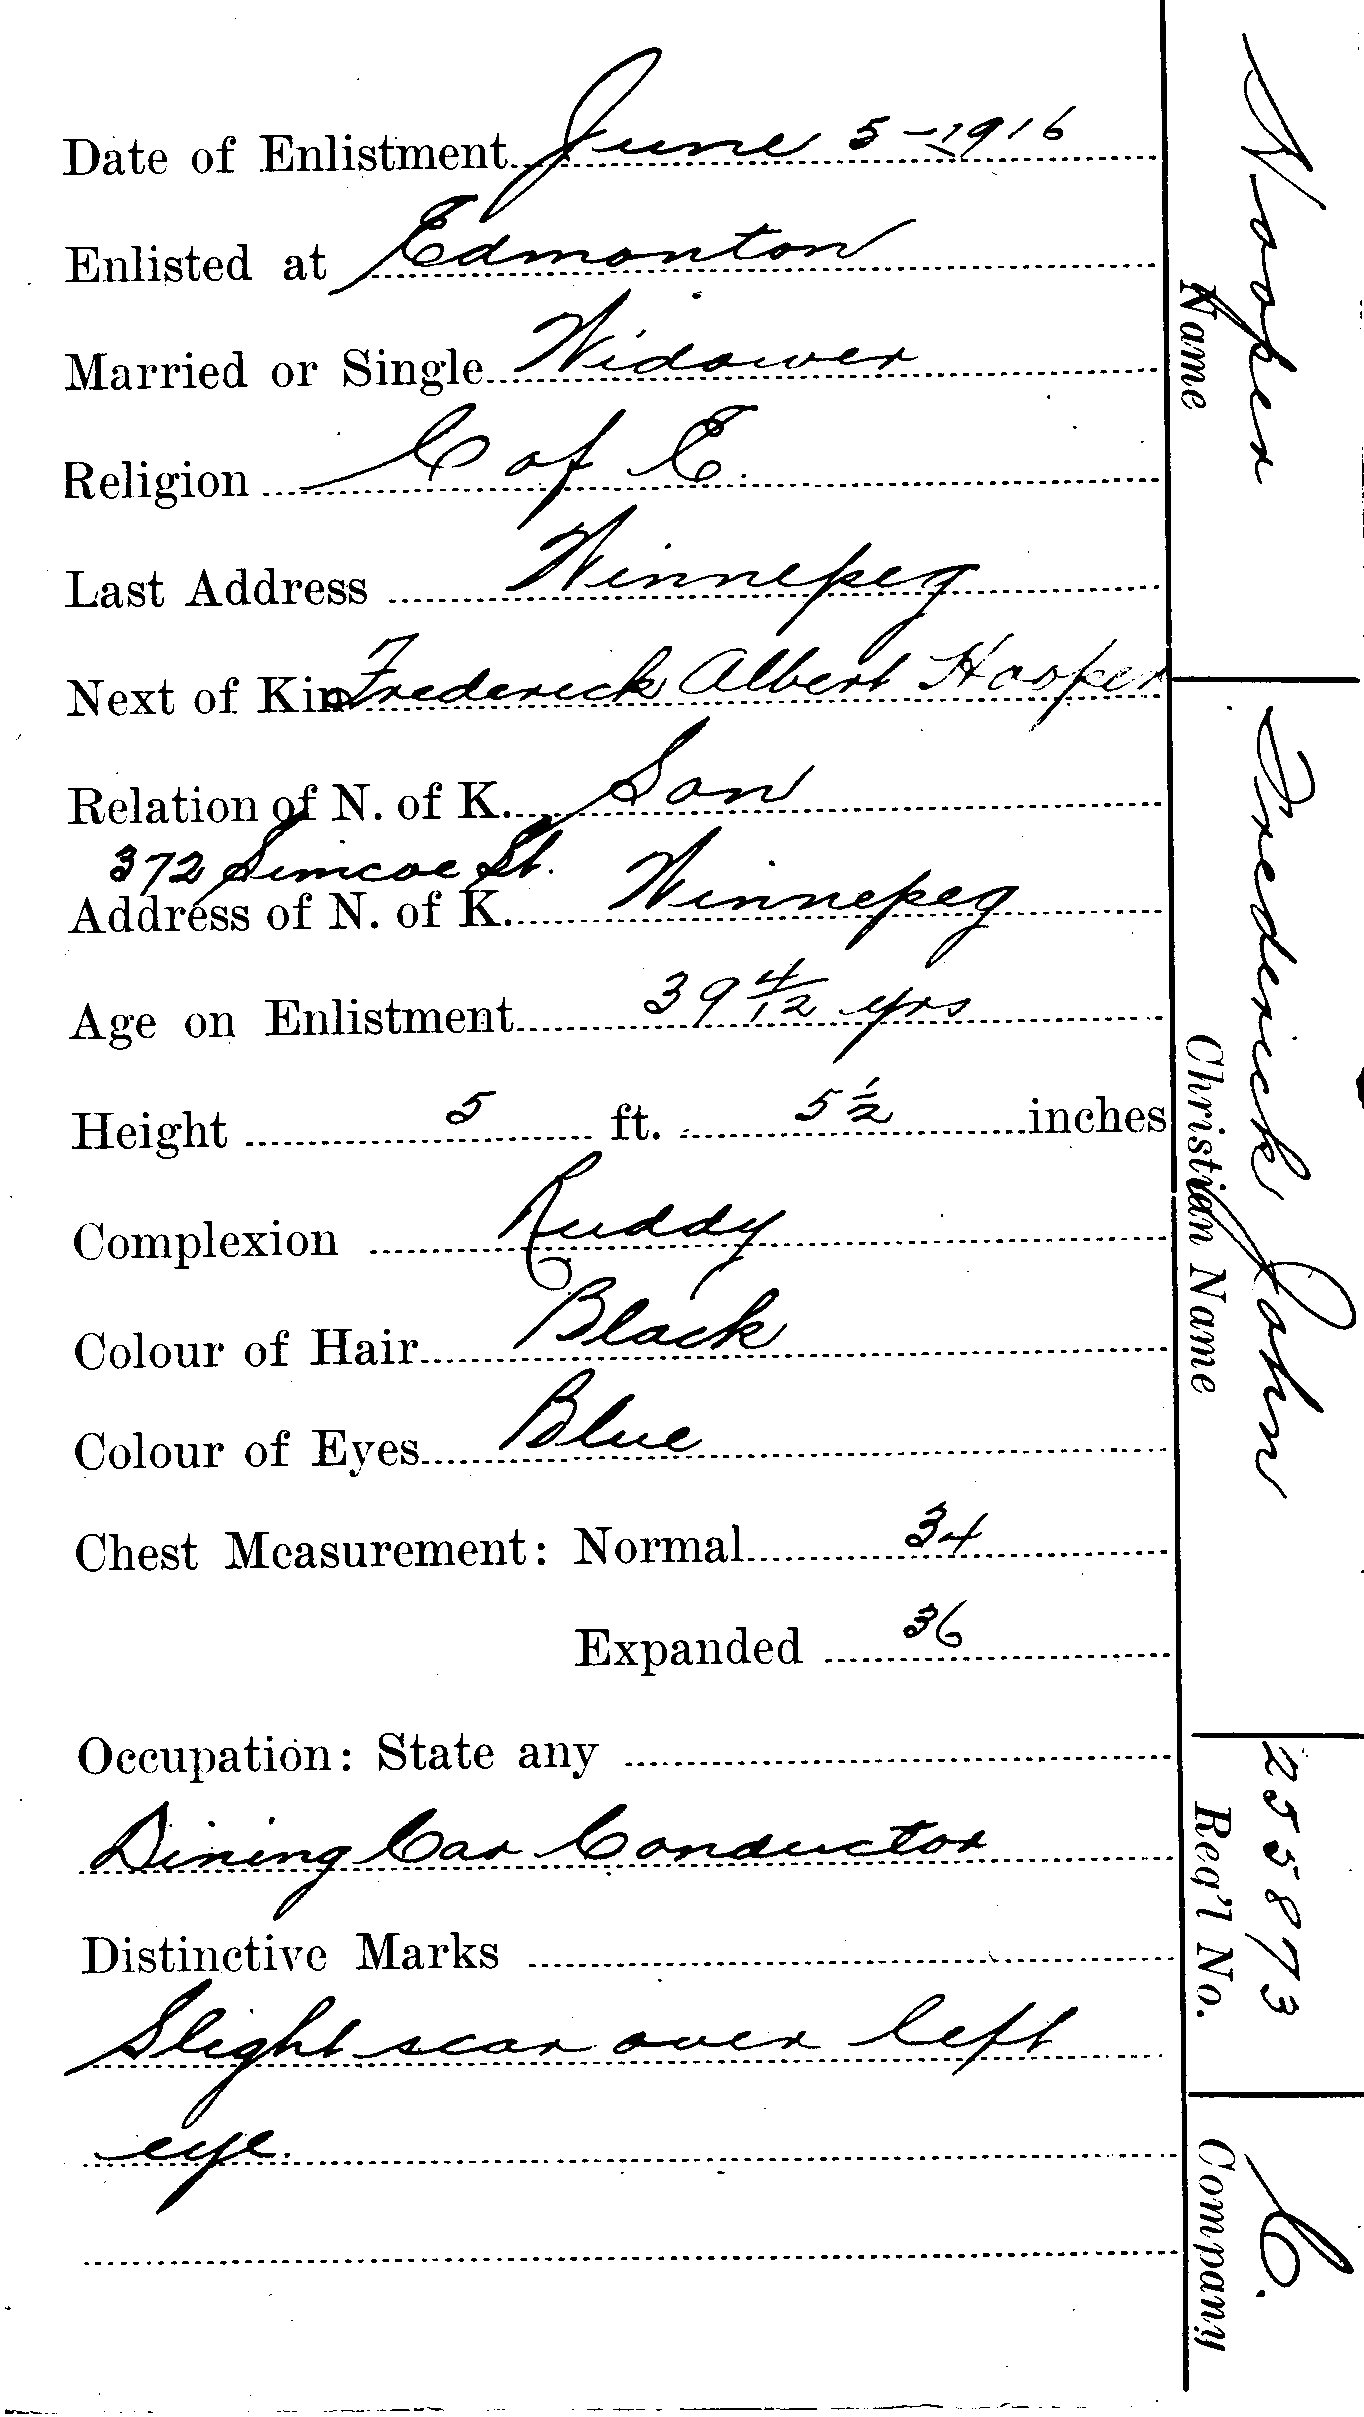 Date of Enlistment June 5-1916
Enlisted at Edmonton
Married or Single Widower
Religion C of E.
Last Address Winnepeg
Next of Kin Frederick Albert Hooper
Relation of N. of K. Son
372 Simcoe St.
Address of N. of K. Winnepeg
Age on Enlistment 39 4/12 yrs
Height 5 ft. 5 1/2 inches
Complexion Ruddy
Colour of Hair Black
Colour of Eyes Blue
Chest Measurement: Normal 34
Expanded 36
Occupation: State any
Dining Car Conductor
Distinctive Marks
Slight scar over left
eye.
Hooper
Name
Frederick John
Christian Name
255873
Reg'l No.
C.
Company